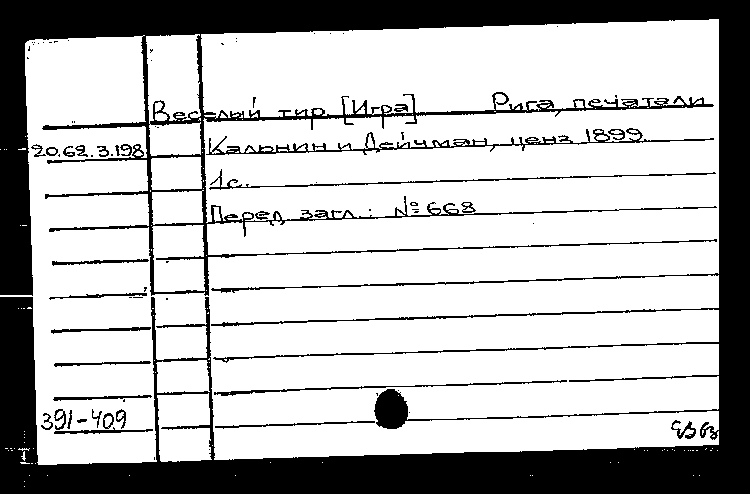 Веселый тир [Игра] Рига, печатали
20.62.3.198 Кальнин и Дейчман, ценз 1899.
1с.
Перед загл.: № 668
391-409